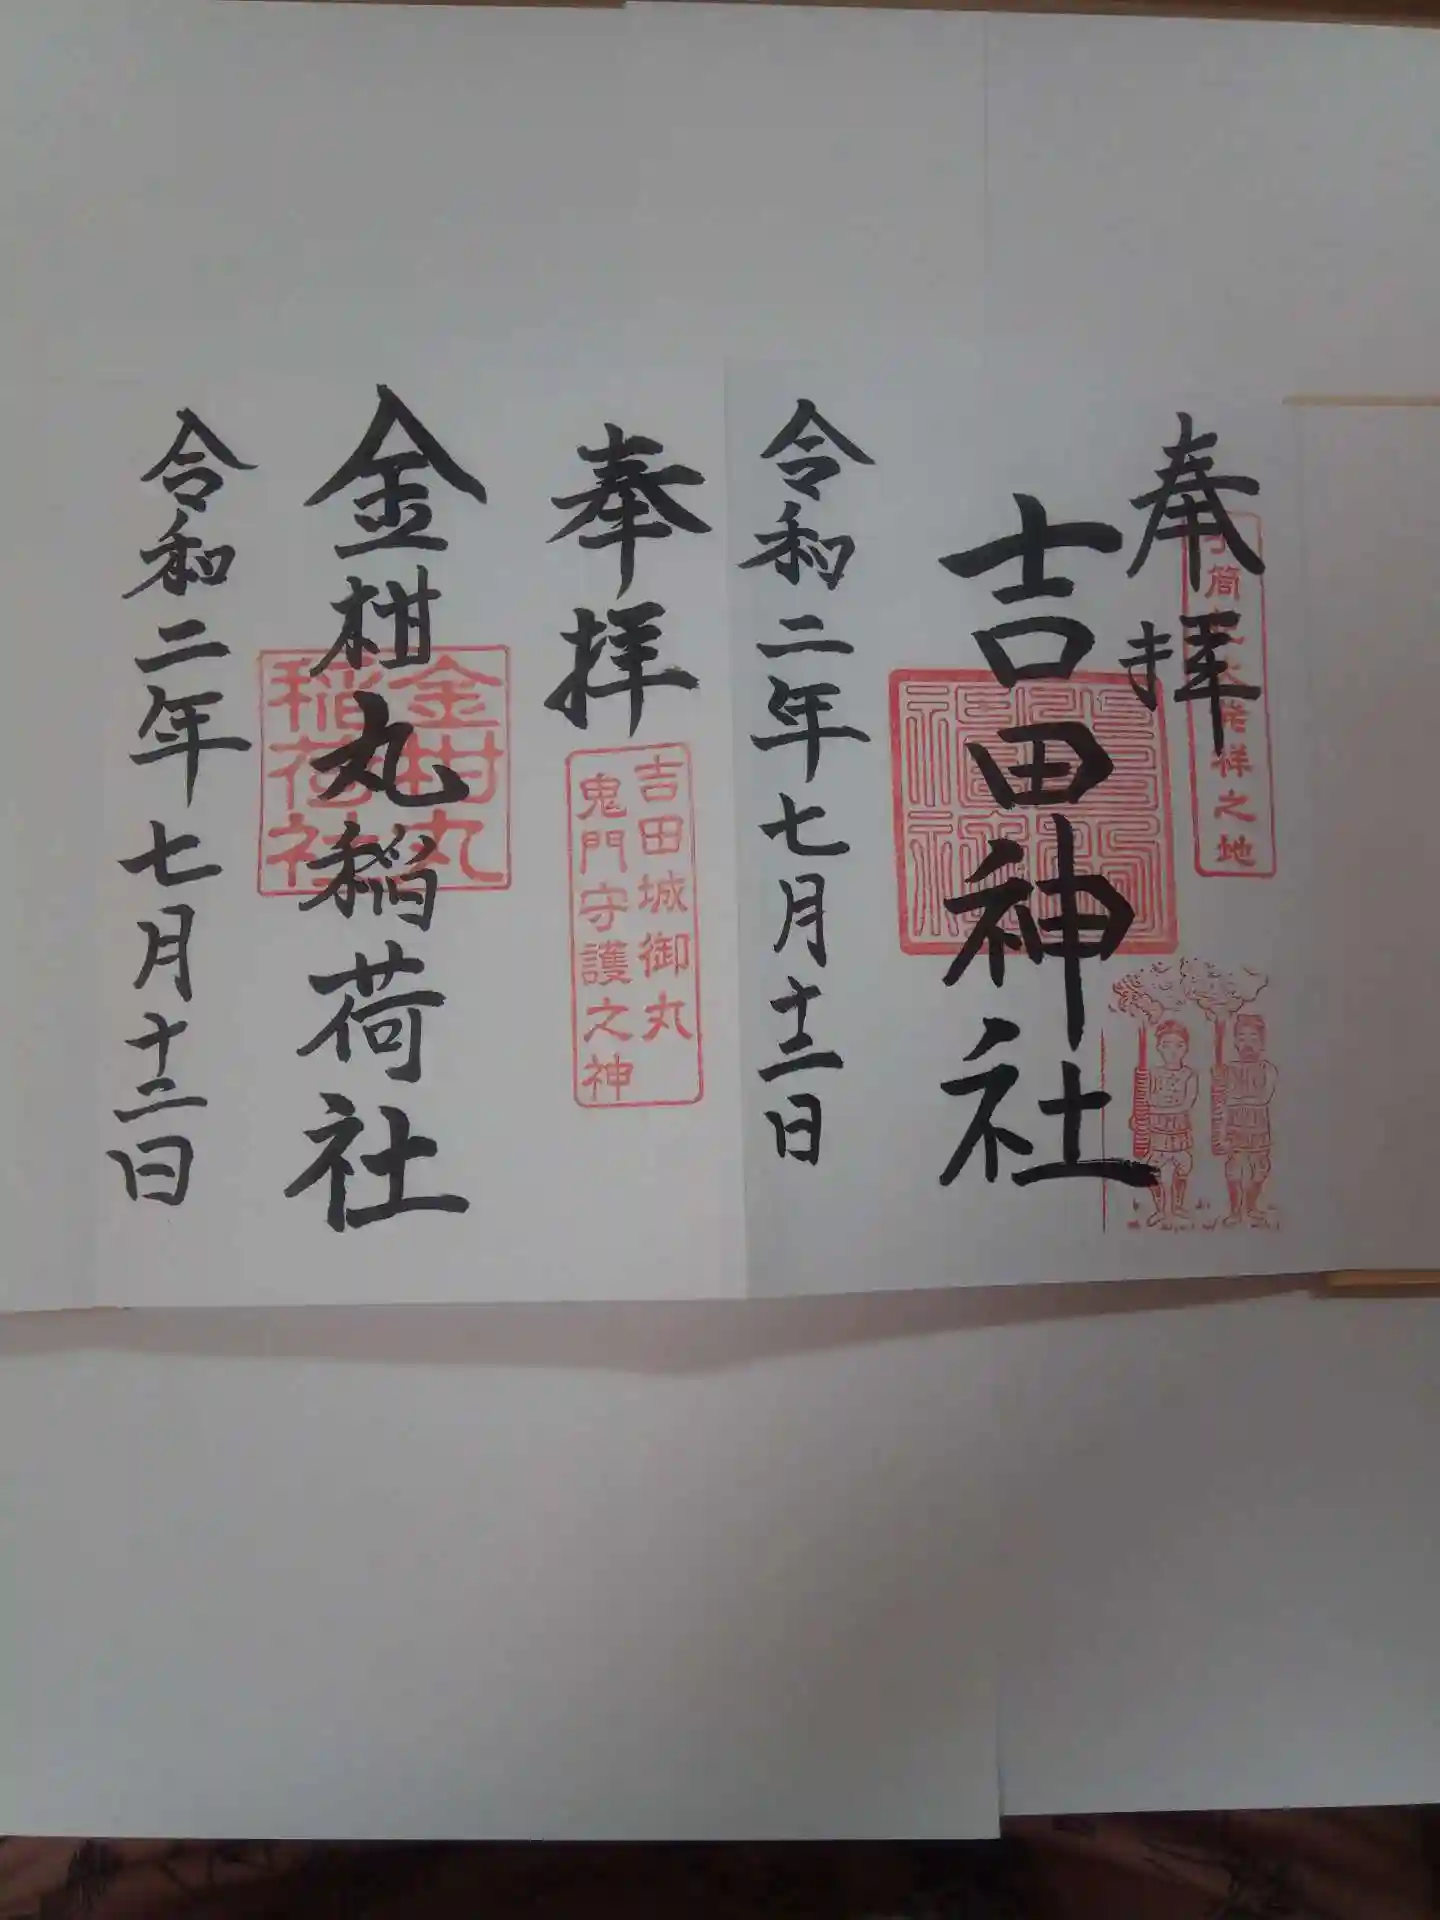 奉拝
筒
発祥之地
吉田神社
令和二年七月十二日
奉拝
吉田城御丸
鬼門守護之神
金柑丸稲荷社
金柑丸
稲荷社
令和二年七月十二日